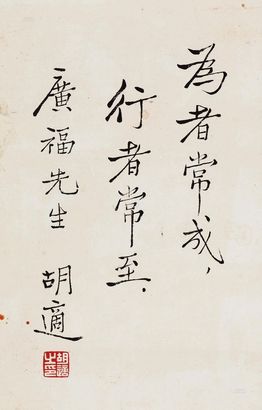 為者常成，
行者常至．
廣福先生
胡適
胡適之印